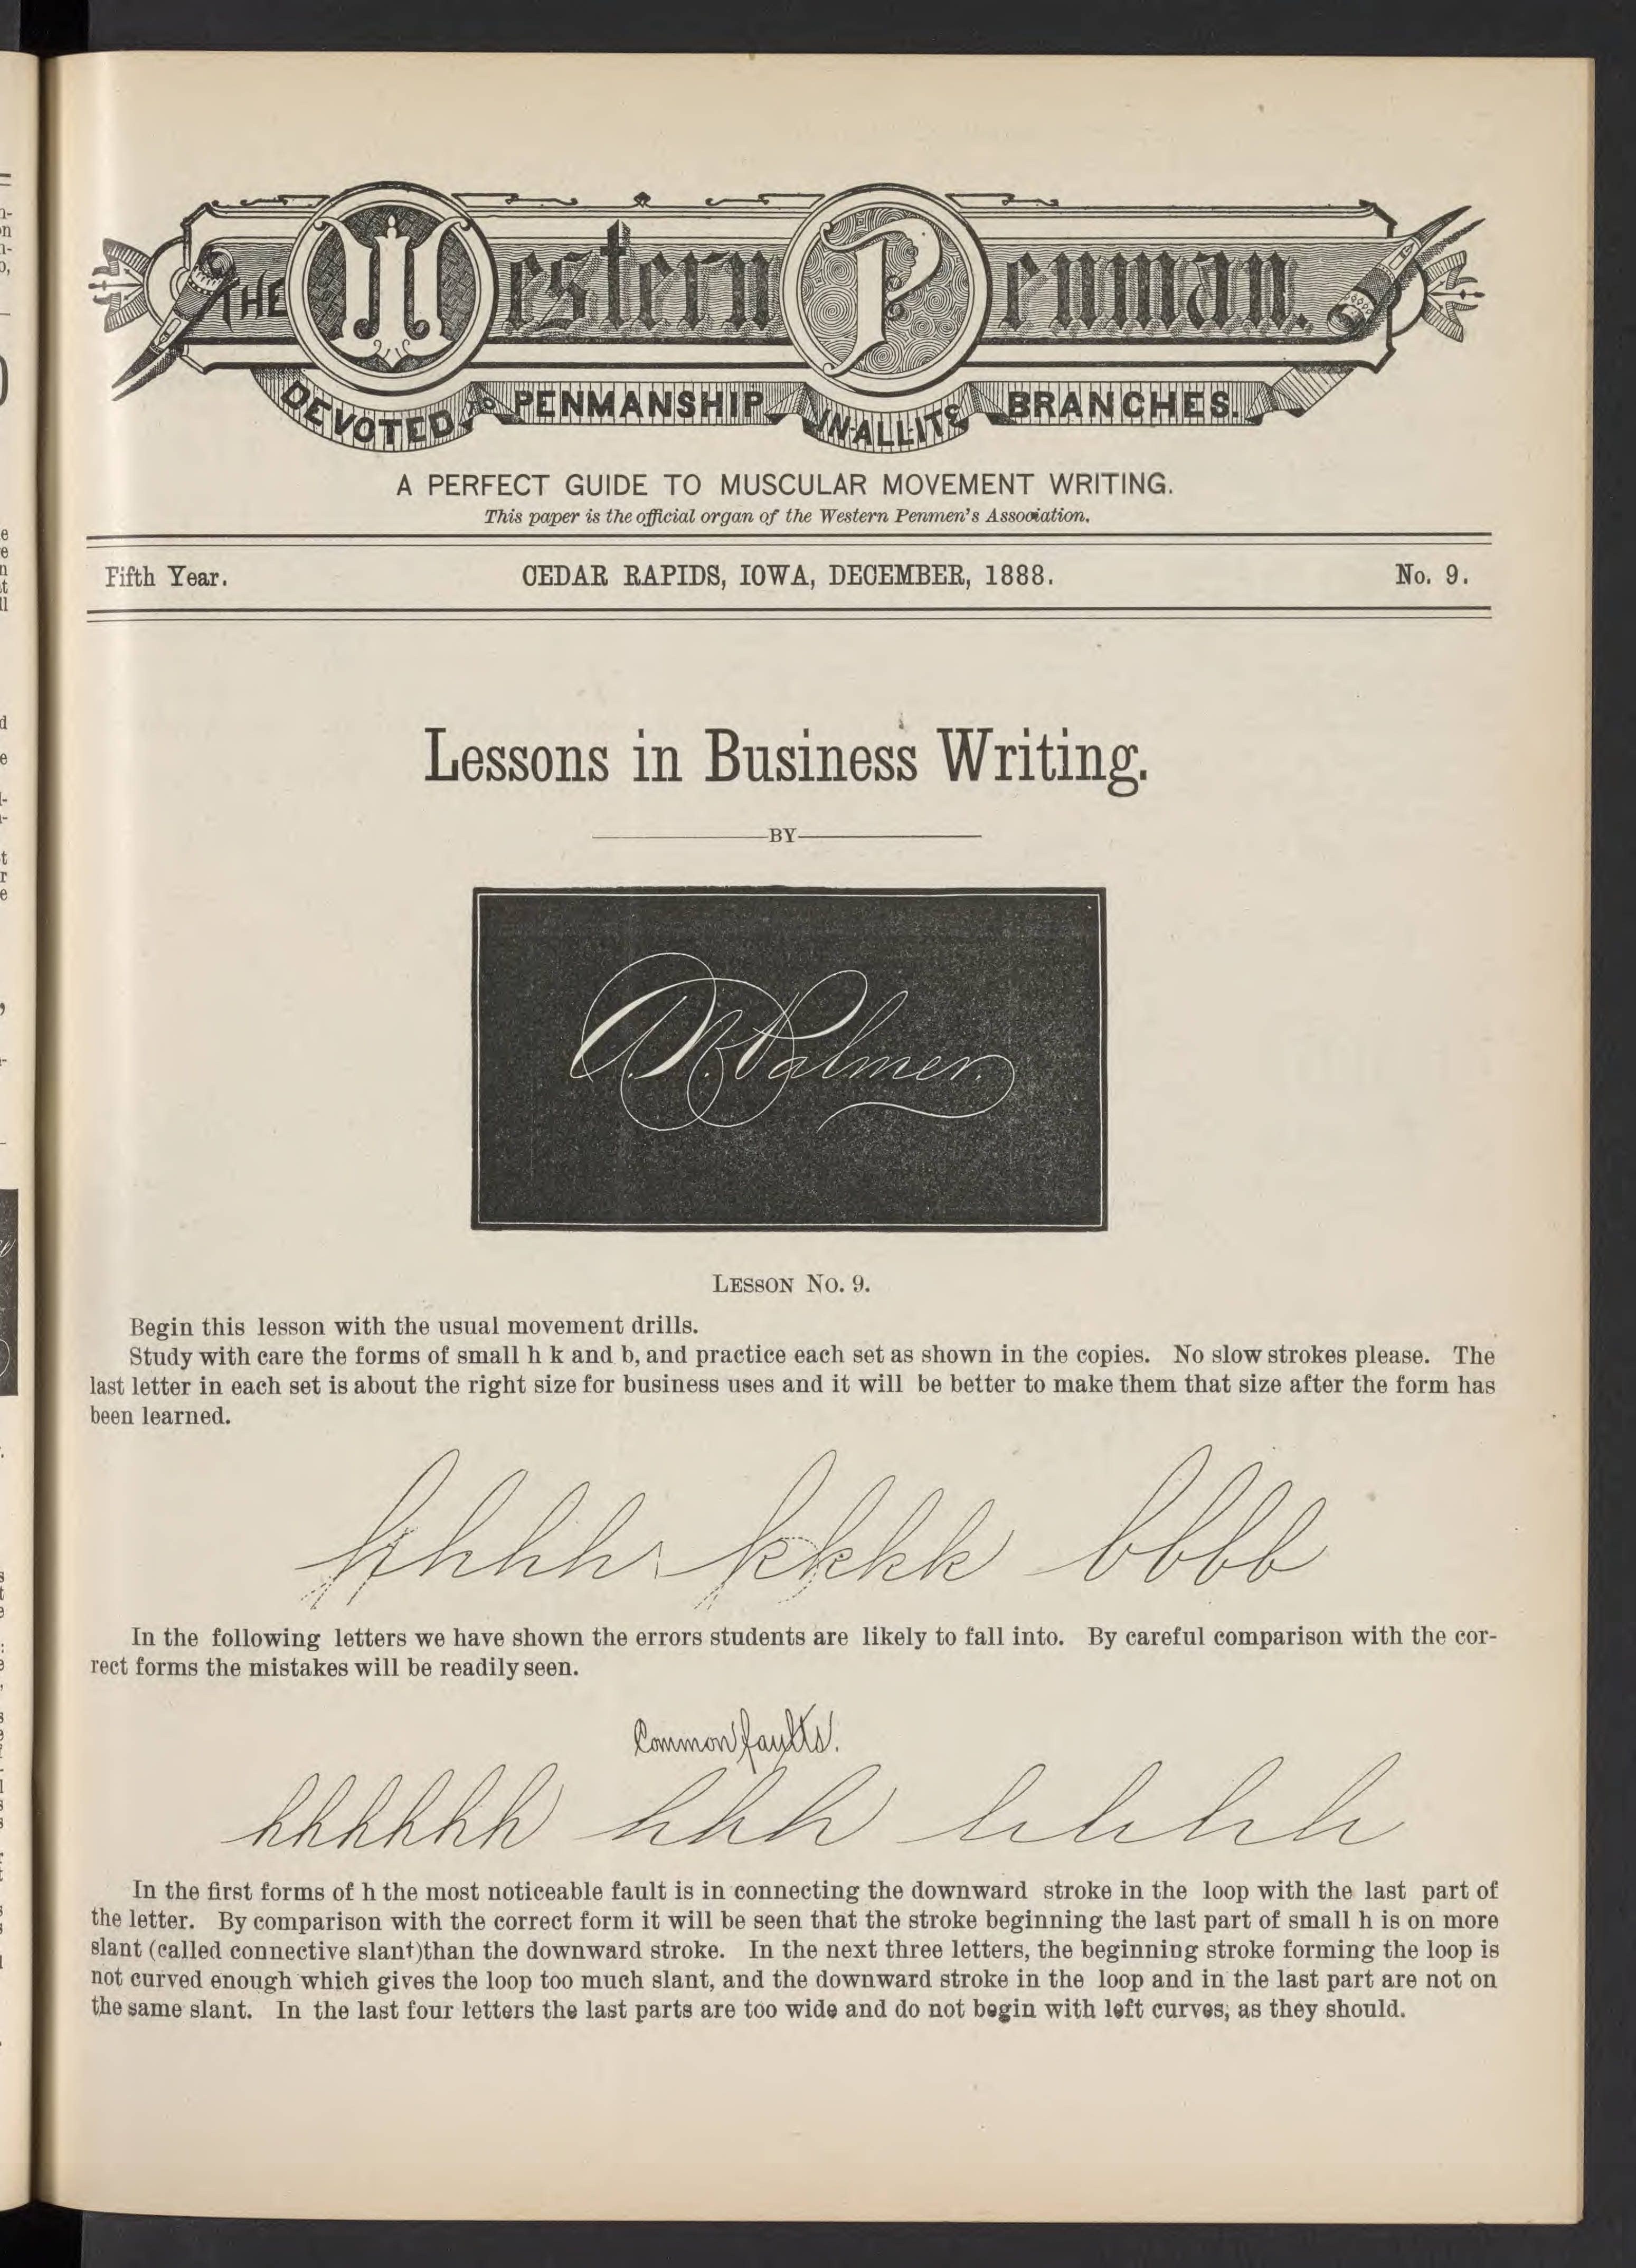 THE Western Penman.
DEVOTED TO PENMANSHIP IN ALL ITS BRANCHES.
A PERFECT GUIDE TO MUSCULAR MOVEMENT WRITING.
This paper is the official organ of the Western Penmen's Association.
Fifth Year. CEDAR RAPIDS, IOWA, DECEMBER, 1888. No. 9.
Lessons in Business Writing.
BY
A. N. Palmer.
LESSON NO. 9.
Begin this lesson with the usual movement drills.
Study with care the forms of small h k and b, and practice each set as shown in the copies. No slow strokes please. The
last letter in each set is about the right size for business uses and it will be better to make them that size after the form has
been learned.
h h h h k k k k b b b b
In the following letters we have shown the errors students are likely to fall into. By careful comparison with the cor-
rect forms the mistakes will be readily seen.
Common faults.
h h h h h h h h h h h h h
In the first forms of h the most noticeable fault is in connecting the downward stroke in the loop with the last part of
the letter. By comparison with the correct form it will be seen that the stroke beginning the last part of small h is on more
slant (called connective slant)than the downward stroke. In the next three letters, the beginning stroke forming the loop is
not curved enough which gives the loop too much slant, and the downward stroke in the loop and in the last part are not on
the same slant. In the last four letters the last parts are too wide and do not begin with left curves, as they should.